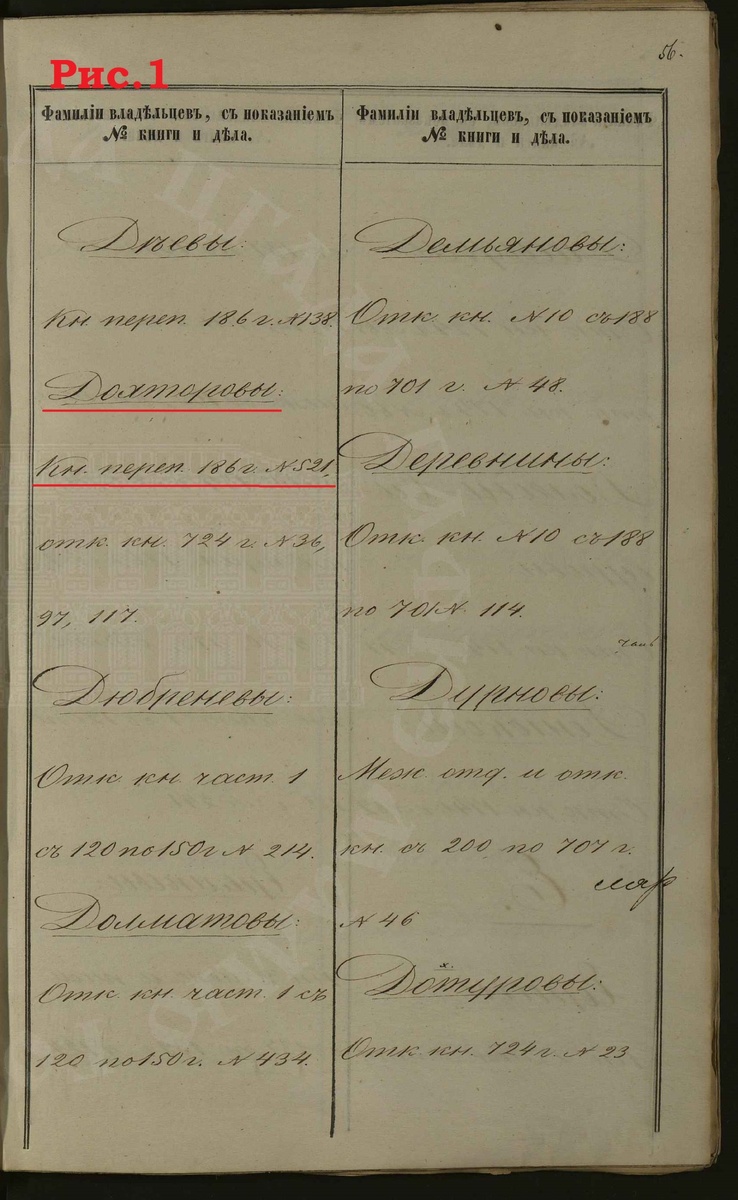 56.
Рис.1
Фамиліи владѣльцевъ, съ показаніемъ
№ книги и дѣла.
Дѣевы:
Кн. переп. 186 г. №138.
Дохторовы:
Кн. переп. 186 г. №521,
отк. кн. 724 г. №36,
97, 117.
Дюбреневы:
Отк. кн. част. 1
съ 120 по 150 г. № 214.
Долматовы:
Отк. кн. част. 1 съ
120 по 150 г. № 434.
Фамиліи владѣльцевъ, съ показаніемъ
№ книги и дѣла.
Демьяновы:
Отк. кн. №10 съ 188
по 701 г. № 48.
Деревнины:
Отк. кн. №10 съ 188
по 701 № 114.
Дурновы:
Меж. отд. и отк.
кн. съ 200 по 707 г.
№ 46
Дохтуровы:
Отк. кн. 724 г. № 23